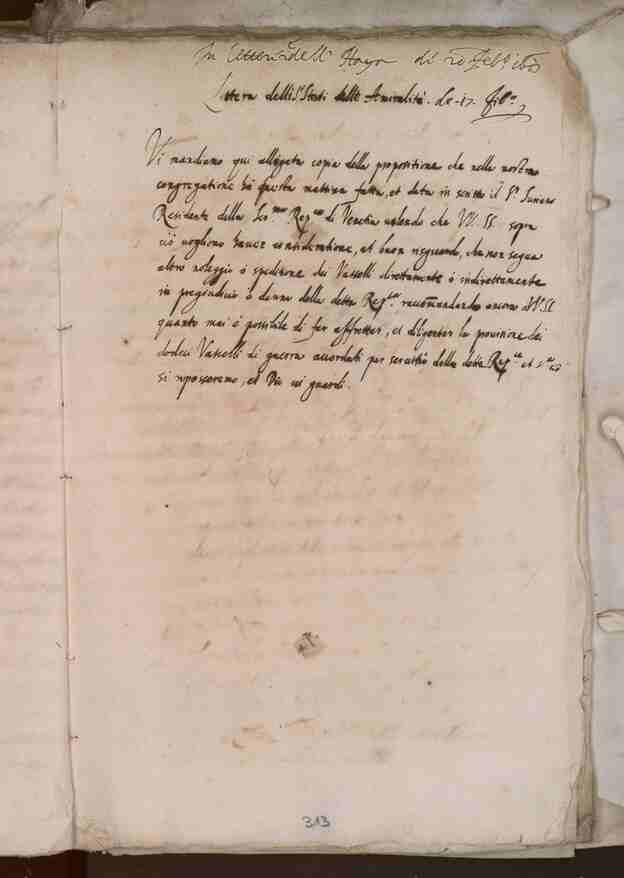 In lettera dell' Haya di 20 Feb.º
Lettera delli Sri Stati delle Amiralità. de .17. Febro
Vi mandiamo qui allegata copia della propositione che nella nostra
congregatione hà questa mattina fatta, et data in scritto il Sr Suriano
Residente della Sermma Repca di Venetia volendo che VV. SS. sopra
ciò vogliono havere consideratione, et buon risguardo, che non segua
altro noleggio ò speditione dei Vasselli direttamente ò indirettamente
in pregiudicio ò danno della detta Repca raccomandando ancora VV. SS.
quanto mai è possibile di far affrettar, et diligentar la provisione dei
dodeci Vasselli di guerra accordati per servitio della detta Repca et
si riposseremo, et Dio vi guardi.
313